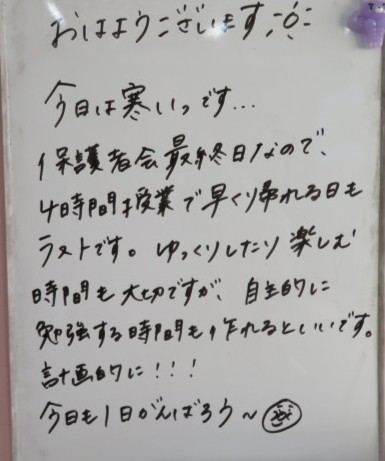 おはようございます
今日は寒いっです...
保護者会最終日なので、
4時間授業で早くり帰れる日も
ラストです。ゆっくりしたり楽しむ
時間も大切ですが、自主的に
勉強する時間も作れるといいです。
計画的に!!!
今日も1日がんばろう〜